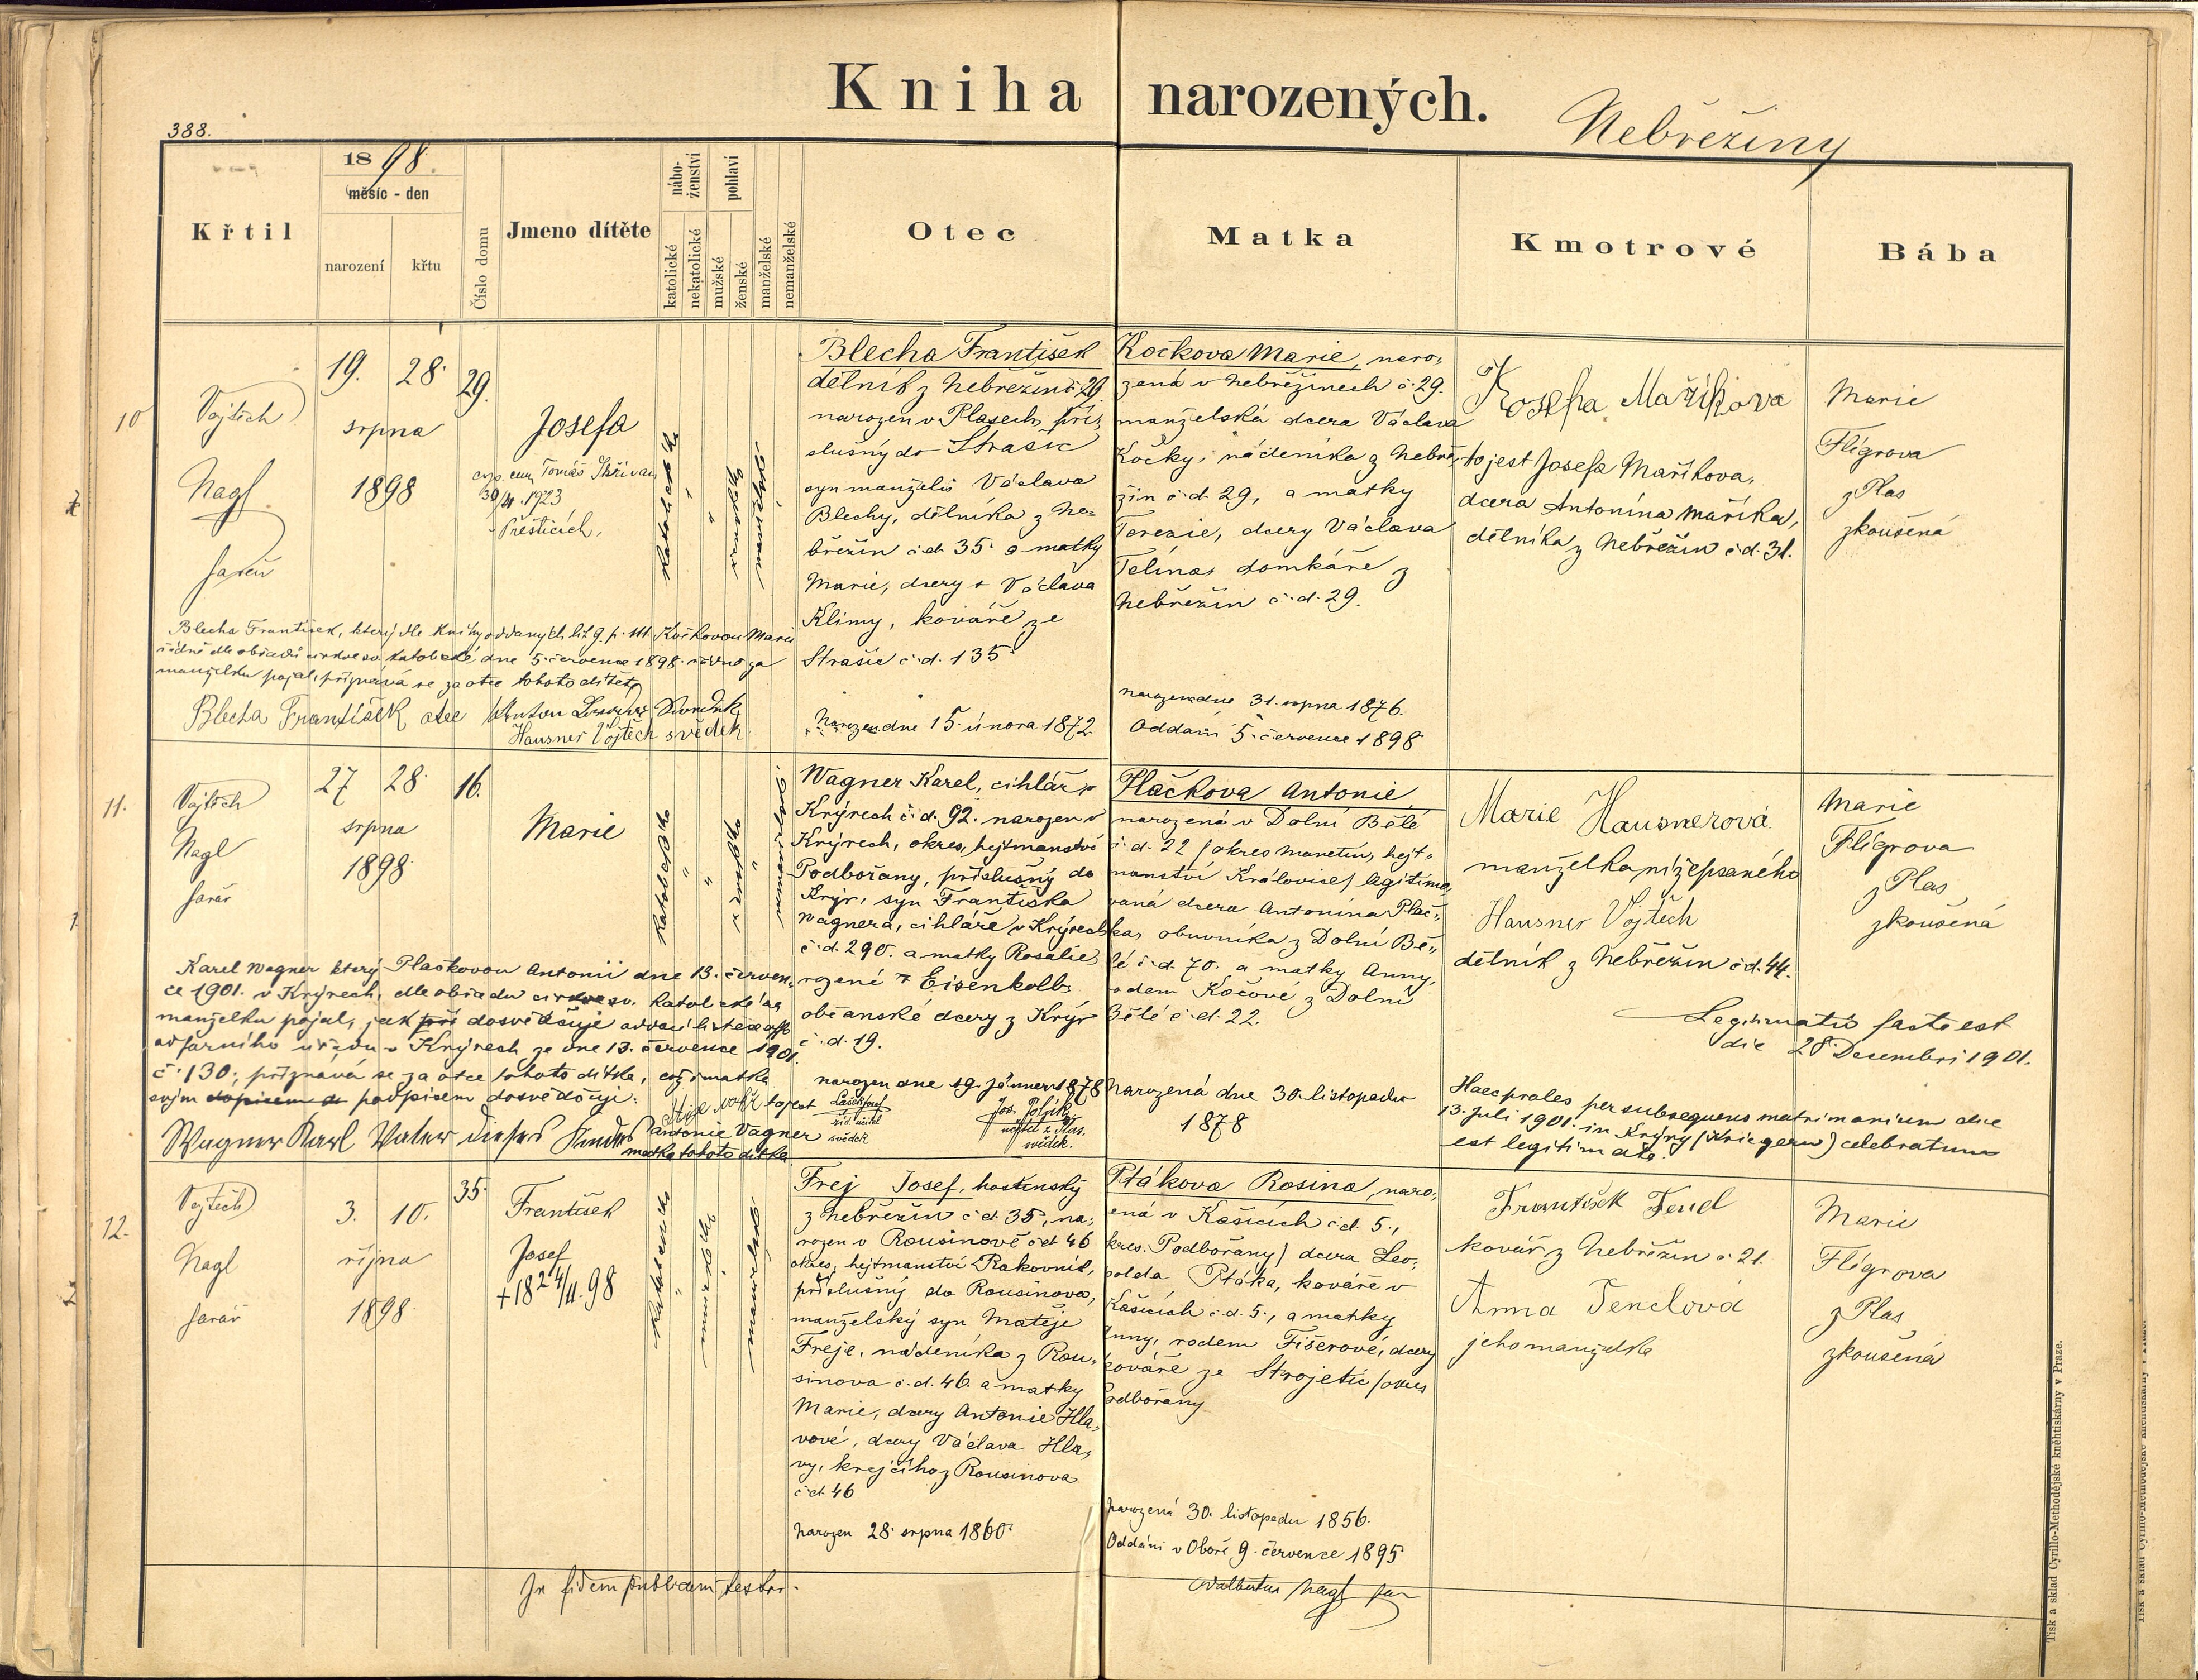 Kniha narozených.
Nebřeziny
388.
Křtil
1898.
měsíc - den
narození
křtu
Číslo domu
Jmeno dítěte
nábo-
ženství
katolické
nekatolické
pohlaví
mužské
ženské
manželské
nemanželské
Otec
Matka
Kmotrové
Bába
10
Vojtěch
Nagl
farář
19. 28.
srpna
1898
29.
Josefa
cop. cum Tomáš Skřivan
30/4. 1923
v Přešticích.
katolické
ženské
manželské
Blecha František
dělník z Nebřežin č. 29
narozen v Plasech, pří-
slušný do Strašic
syn manželů Václava
Blechy, dělníka z Ne-
břežin č.d. 35 a matky
Marie, dcery + Václava
Klimy, kováře ze
Strašic č.d. 135
Narozen dne 15. února 1872
Kočkova Marie, naro-
zená v Nebřežinech č. 29.
manželská dcera Václava
Kočky, nádeníka z Nebře-
žin č.d. 29, a matky
Terezie, dcery Václava
Telína, domkáře z
Nebřežin č.d. 29.
narozena dne 31. srpna 1876.
Oddáni 5. července 1898
Josefa Maříkova
to jest Josefa Maříkova,
dcera Antonína Maříka,
dělníka z Nebřežin č.d. 31.
Marie
Flígrova
z Plas
zkoušená
Blecha František, který dle knihy oddaných lit. 9. p. 111 Kočkovou Marii
řádně dle obřadů církve sv. katolické dne 5. července 1898 za
manželku pojal, přiznává se za otce tohoto dítěte
Blecha František otec Anton
Hausner Vojtěch svědek
11.
Vojtěch
Nagl
farář
27 28.
srpna
1898
16.
Marie
katolické
ženské
nemanželské
Wagner Karel, cihlář v
Krýrech č.d. 92. narozen v
Krýrech, okres. hejtmanství
Podbořany, příslušný do
Krýr, syn Františka
Wagnera, cihláře v Krýrech
č.d. 290. a matky Rosalie
rozené z Eisenkolb
občanské dcery z Krýr
č.d. 19.
narozen dne 19. jänner 1878
Plačkova Antonie
narozená v Dolní Bělé
č.d. 22 (okres Manetín, hejt-
manství Kralovice) legitimo-
vaná dcera Antonína Plač-
ka, obuvníka z Dolní Bě-
lé č.d. 70. a matky Anny,
rodem Kočové z Dolní
Bělé č.d. 22.
Narozená dne 30. listopadu
1878
Marie Hausnerová
manželka nížepsaného
Hausner Vojtěch
dělník z Nebřežin č.d. 44.
Marie
Flígrova
z Plas
zkoušená
Legitimatio facta est
die 28 Decembri 1901.
Haec proles per subsequens matrimonium die
13. Juli 1901. in Krýry (Kriegern) celebratum
est legitimata.
Karel Wagner který Plačkovou Antonii dne 13. červen-
ce 1901. v Krýrech, dle obřadu církve sv. katolické za
manželku pojal, jak dosvědčuje oddací list
od farního úřadu v Krýrech ze dne 13. července 1901.
č. 130; přiznává se za otce tohoto dítka, což i matka
svým podpisem dosvědčuje.
Wagner Karl Vater dieses Kindes
to jest
Antonie Vagner
matka tohoto dítka
svědek
Jos. Polák
učitel z Plas.
svědek.
12.
Vojtěch
Nagl
farář
3. 10.
října
1898
35.
František
Josef
+18 24/11. 98
katolické
mužské
manželské
Frej Josef, hostinský
z Nebřežin č.d. 35, na-
rozen v Rousinově č.d. 46
okres. hejtmanství Rakovník,
příslušný do Rousinova,
manželský syn Matěje
Freje, nádeníka z Rou-
sinova č.d. 46. a matky
Marie, dcery Antonie Hla-
vové, dcery Václava Hla-
vy, krejčího z Rousinova
č.d. 46
Narozen 28. srpna 1860.
Ptákova Rosina, naro-
ená v Kašicích č.d. 5.,
kres. Podbořany) dcera Leo-
polda Ptáka, kováře v
Kašicích č.d. 5., a matky
Anny, rodem Fišerové, dcery
kováře ze Strojetic (okres
Podbořany
Narozená 30. listopadu 1856.
Oddáni v Oboře 9. července 1895
František Fencl
kovář z Nebřežin č. 21.
Anna Fenclová
jeho manželka
Marie
Flígrova
z Plas
zkoušená
In fidem publicam testor.
Adalbertus Nagl
Tisk a sklad Cyrillo-Methodějské knihtiskárny v Praze.